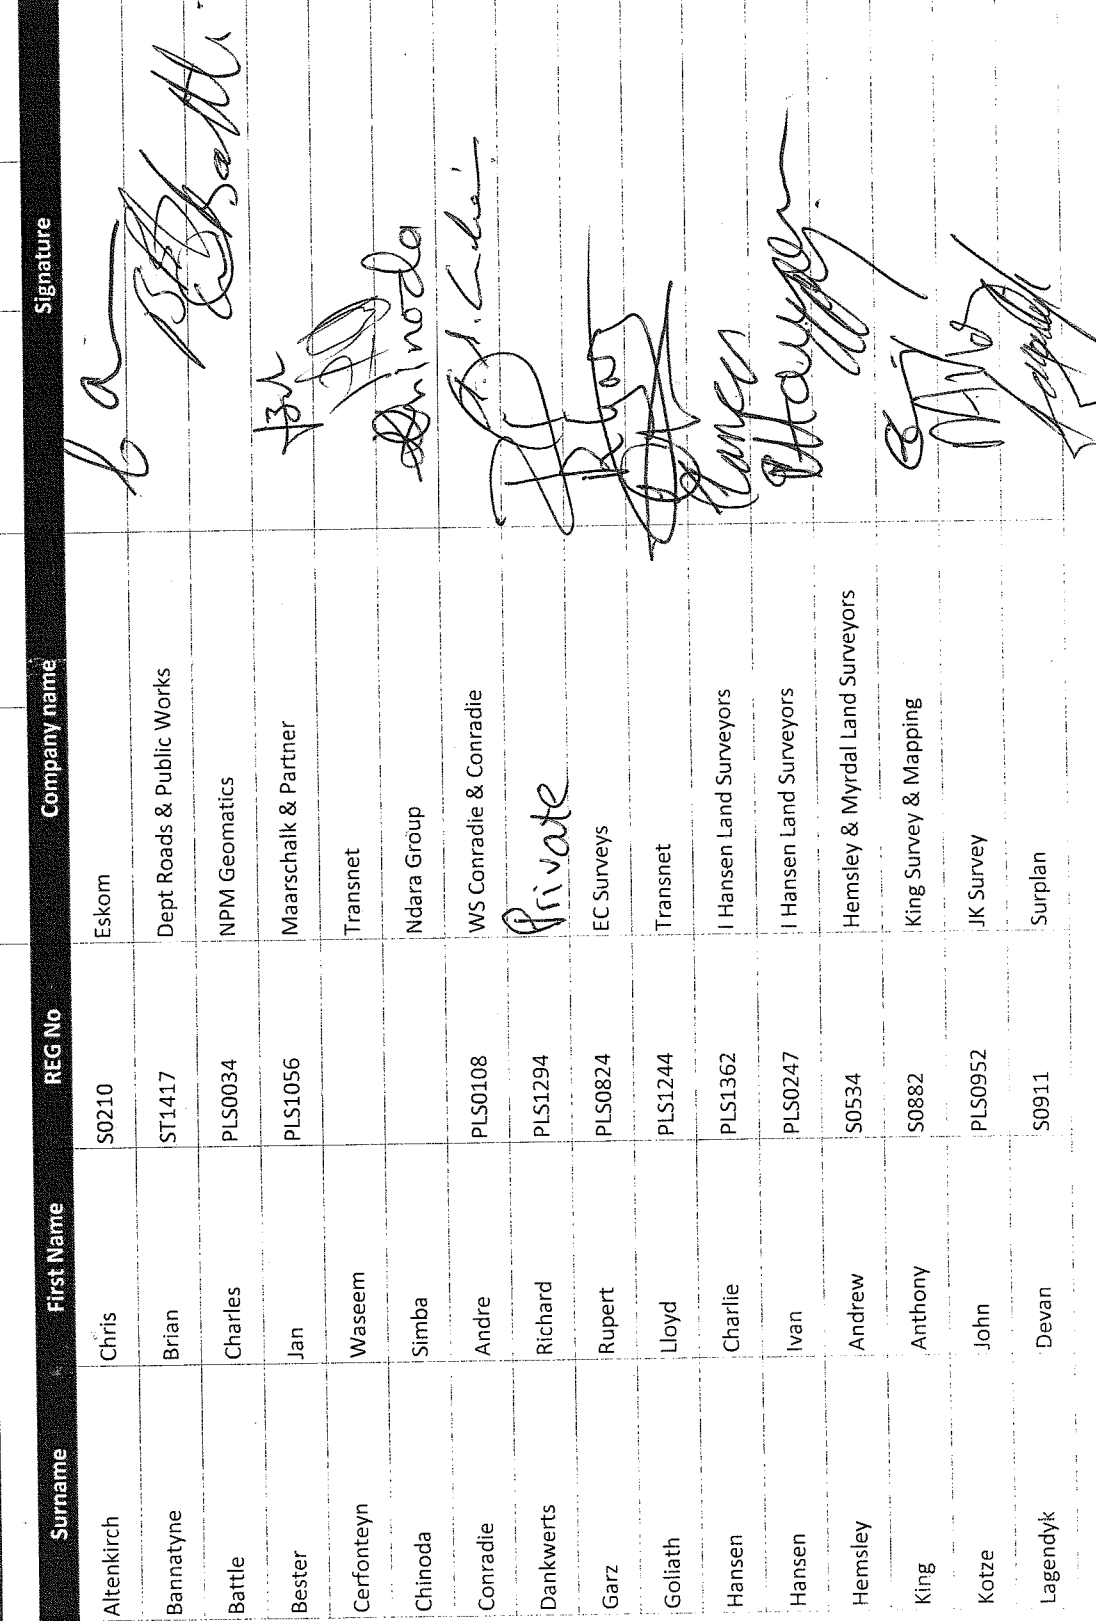 Surname First Name REG No Company name Signature
Altenkirch Chris S0210 Eskom
Bannatyne Brian ST1417 Dept Roads & Public Works
Battle Charles PLS0034 NPM Geomatics
Bester Jan PLS1056 Maarschalk & Partner
Cerfonteyn Waseem Transnet
Chinoda Simba Ndara Group Chinoda
Conradie Andre PLS0108 WS Conradie & Conradie
Dankwerts Richard PLS1294 Private
Garz Rupert PLS0824 EC Surveys
Goliath Lloyd PLS1244 Transnet
Hansen Charlie PLS1362 I Hansen Land Surveyors
Hansen Ivan PLS0247 I Hansen Land Surveyors
Hemsley Andrew S0534 Hemsley & Myrdal Land Surveyors
King Anthony S0882 King Survey & Mapping
Kotze John PLS0952 JK Survey
Lagendyk Devan S0911 Surplan